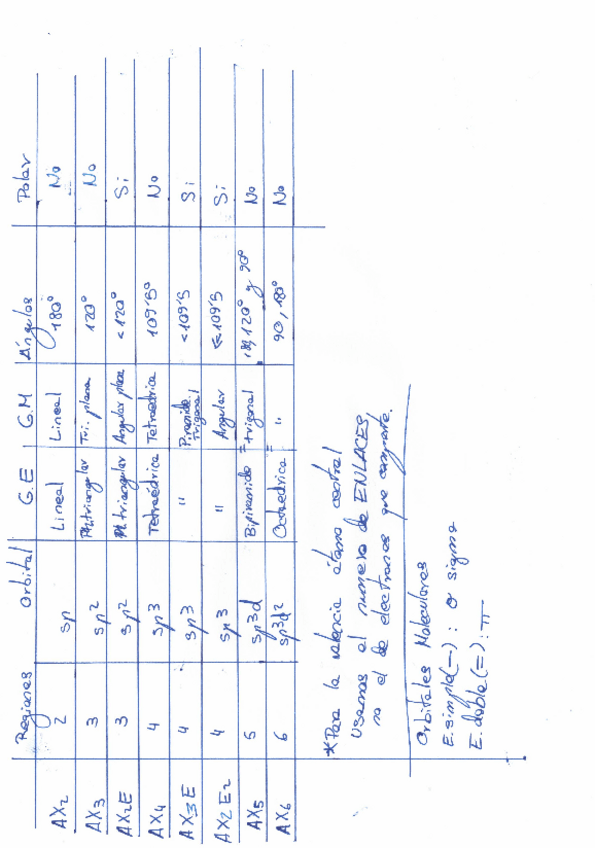 Regiones Orbital G.E G.M Ángulos Polar
AX2 2 sp Lineal Lineal 180° No
AX3 3 sp2 Pl. triangular Tri. plana 120° No
AX2E 3 sp2 Pl. triangular Angular plana <120° Si
AX4 4 sp3 Tetraédrica Tetraedrica 109'5° No
AX3E 4 sp3 " Piramide Trigonal <109'5 Si
AX2E2 4 sp3 " Angular <109'5 Si
AX5 5 sp3d Bipiramide = trigonal 120° y 90° No
AX6 6 sp3d2 Octaedrica = " 90, 180° No
*Para la valencia átomo central
Usamos el numero de ENLACES
no el de electrones que comparte.
Orbitales Moleculares
E. simple(—): σ sigma
E. doble(=): π